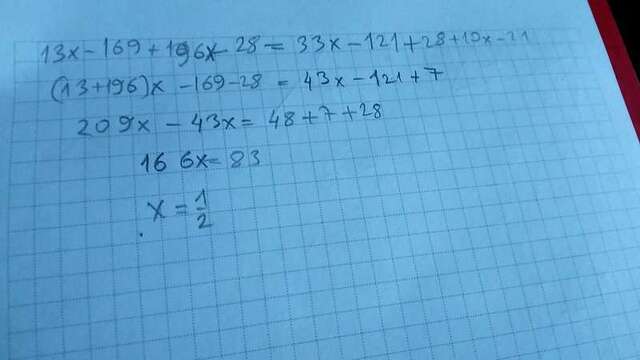 13x - 169 + 196x - 28 = 33x - 121 + 28 + 10x - 21
(13+196)x - 169 - 28 = 43x - 121 + 7
209x - 43x = 48 + 7 + 28
166x = 83
x = 1/2